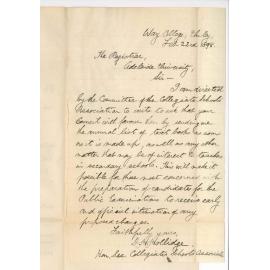 Way College, Ch. Ey,
Feb. 22nd 1898.
The Registrar,
Adelaide University,
Sir —
I am directed
by the Committee of the Collegiate Schools
Association to write to ask that your
Council will favour them by sending me
the annual list of text books as soon
as it is made up, as well as any other
matter that may be of interest to teachers
in secondary schools. This will make it
possible for those most concerned with
the preparation of candidates for the
Public Examinations to receive early
and official intimation of any
proposed changes.
Faithfully yours,
D. H. Hollidge
Hon. Sec. Collegiate Schools Association